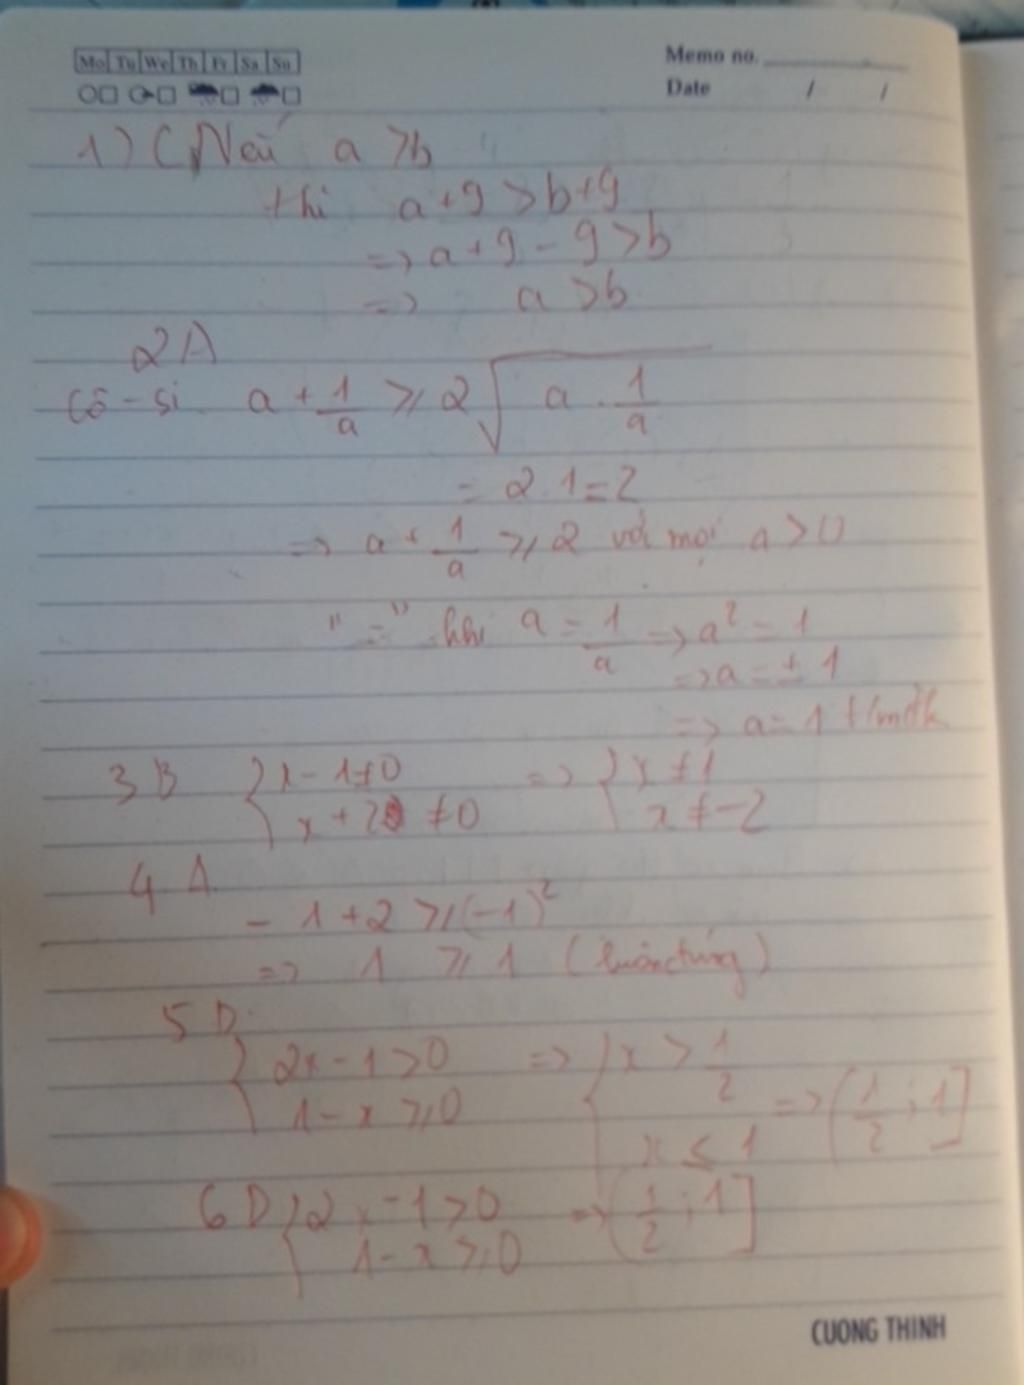 Mo Tu We Th Fr Sa Su
Memo no.
Date / /
1) C Nếu a > b
thì a + 9 > b + 9
=> a + 9 - 9 > b
=> a > b
2 A
Cô-si a + 1/a ≥ 2√(a . 1/a)
= 2.1 = 2
=> a + 1/a ≥ 2 với mọi a > 0
"=" khi a = 1/a => a² = 1
=> a = ± 1
=> a = 1 t/m đk
3 B { x - 1 ≠ 0 => { x ≠ 1
x + 2 ≠ 0 x ≠ -2
4 A
- 1 + 2 ≥ (-1)²
=> 1 ≥ 1 (luôn đúng)
5 D
{ 2x - 1 > 0 => { x > 1/2
1 - x ≥ 0 x ≤ 1 => (1/2 ; 1]
6 D { 2x - 1 > 0 => (1/2 ; 1]
1 - x ≥ 0
CUONG THINH